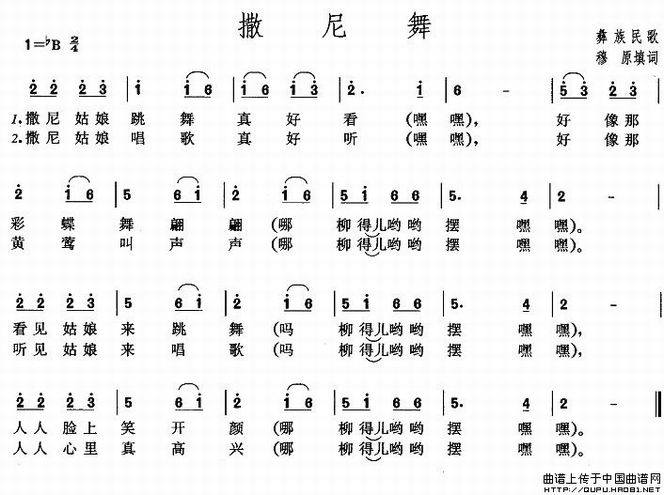 撒尼舞
1=♭B 2/4
彝族民歌
穆原填词
2̇ 2̇ 2̇ 3̇ | 1̇ 1̇ 6 | 2̇ 3̇ 2̇ 3̇ | 2̇. 1̇ | 6 - | 5̇ 3̇ 2̇ 3̇ |
1.撒尼姑娘跳舞真好看(嘿嘿), 好像那
2.撒尼姑娘唱歌真好听(嘿嘿), 好像那
2̇ 1̇ 6 | 5 6 1̇ | 2̇ 1̇ 6 | 5 1̇ 6 6 | 5. 4 | 2 - |
彩蝶舞翩翩(哪柳得儿哟哟摆嘿嘿)。
黄莺叫声声(哪柳得儿哟哟摆嘿嘿)。
2̇ 2̇ 2̇ 3̇ | 5 6 1̇ | 2̇ 1̇ 6 | 5 1̇ 6 6 | 5. 4 | 2 - |
看见姑娘来跳舞(吗柳得儿哟哟摆嘿嘿)。
听见姑娘来唱歌(吗柳得儿哟哟摆嘿嘿)。
2̇ 2̇ 2̇ 3̇ | 5 6 1̇ | 2̇ 1̇ 6 | 5 1̇ 6 6 | 5. 4 | 2 - ‖
人人脸上笑开颜(哪柳得儿哟哟摆嘿嘿)。
人人心里真高兴(哪柳得儿哟哟摆嘿嘿)。
曲谱上传于中国曲谱网
HTTP://QUPU.HAO81.NET